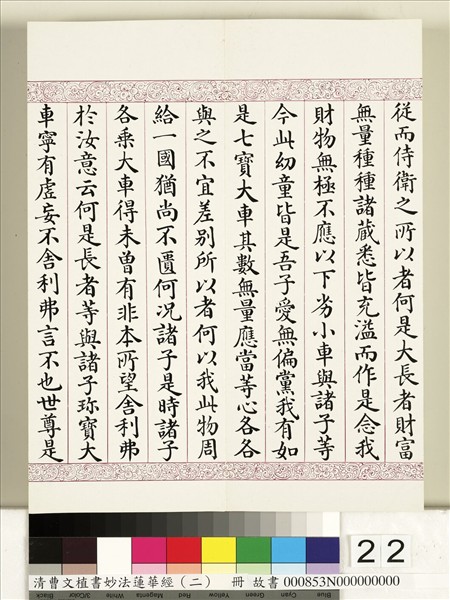 從而侍衛之所以者何是大長者財富
無量種種諸藏悉皆充溢而作是念我
財物無極不應以下劣小車與諸子等
今此幼童皆是吾子愛無偏黨我有如
是七寶大車其數無量應當等心各各
與之不宜差別所以者何以我此物周
給一國猶尚不匱何况諸子是時諸子
各乘大車得未曾有非本所望舍利弗
於汝意云何是長者等與諸子珎寶大
車寧有虛妄不舍利弗言不也世尊是
22
Blue Cyan Green Yellow Red Magenta White 3/Color Black
清曹文植書妙法蓮華經（二） 冊 故書 000853N000000000